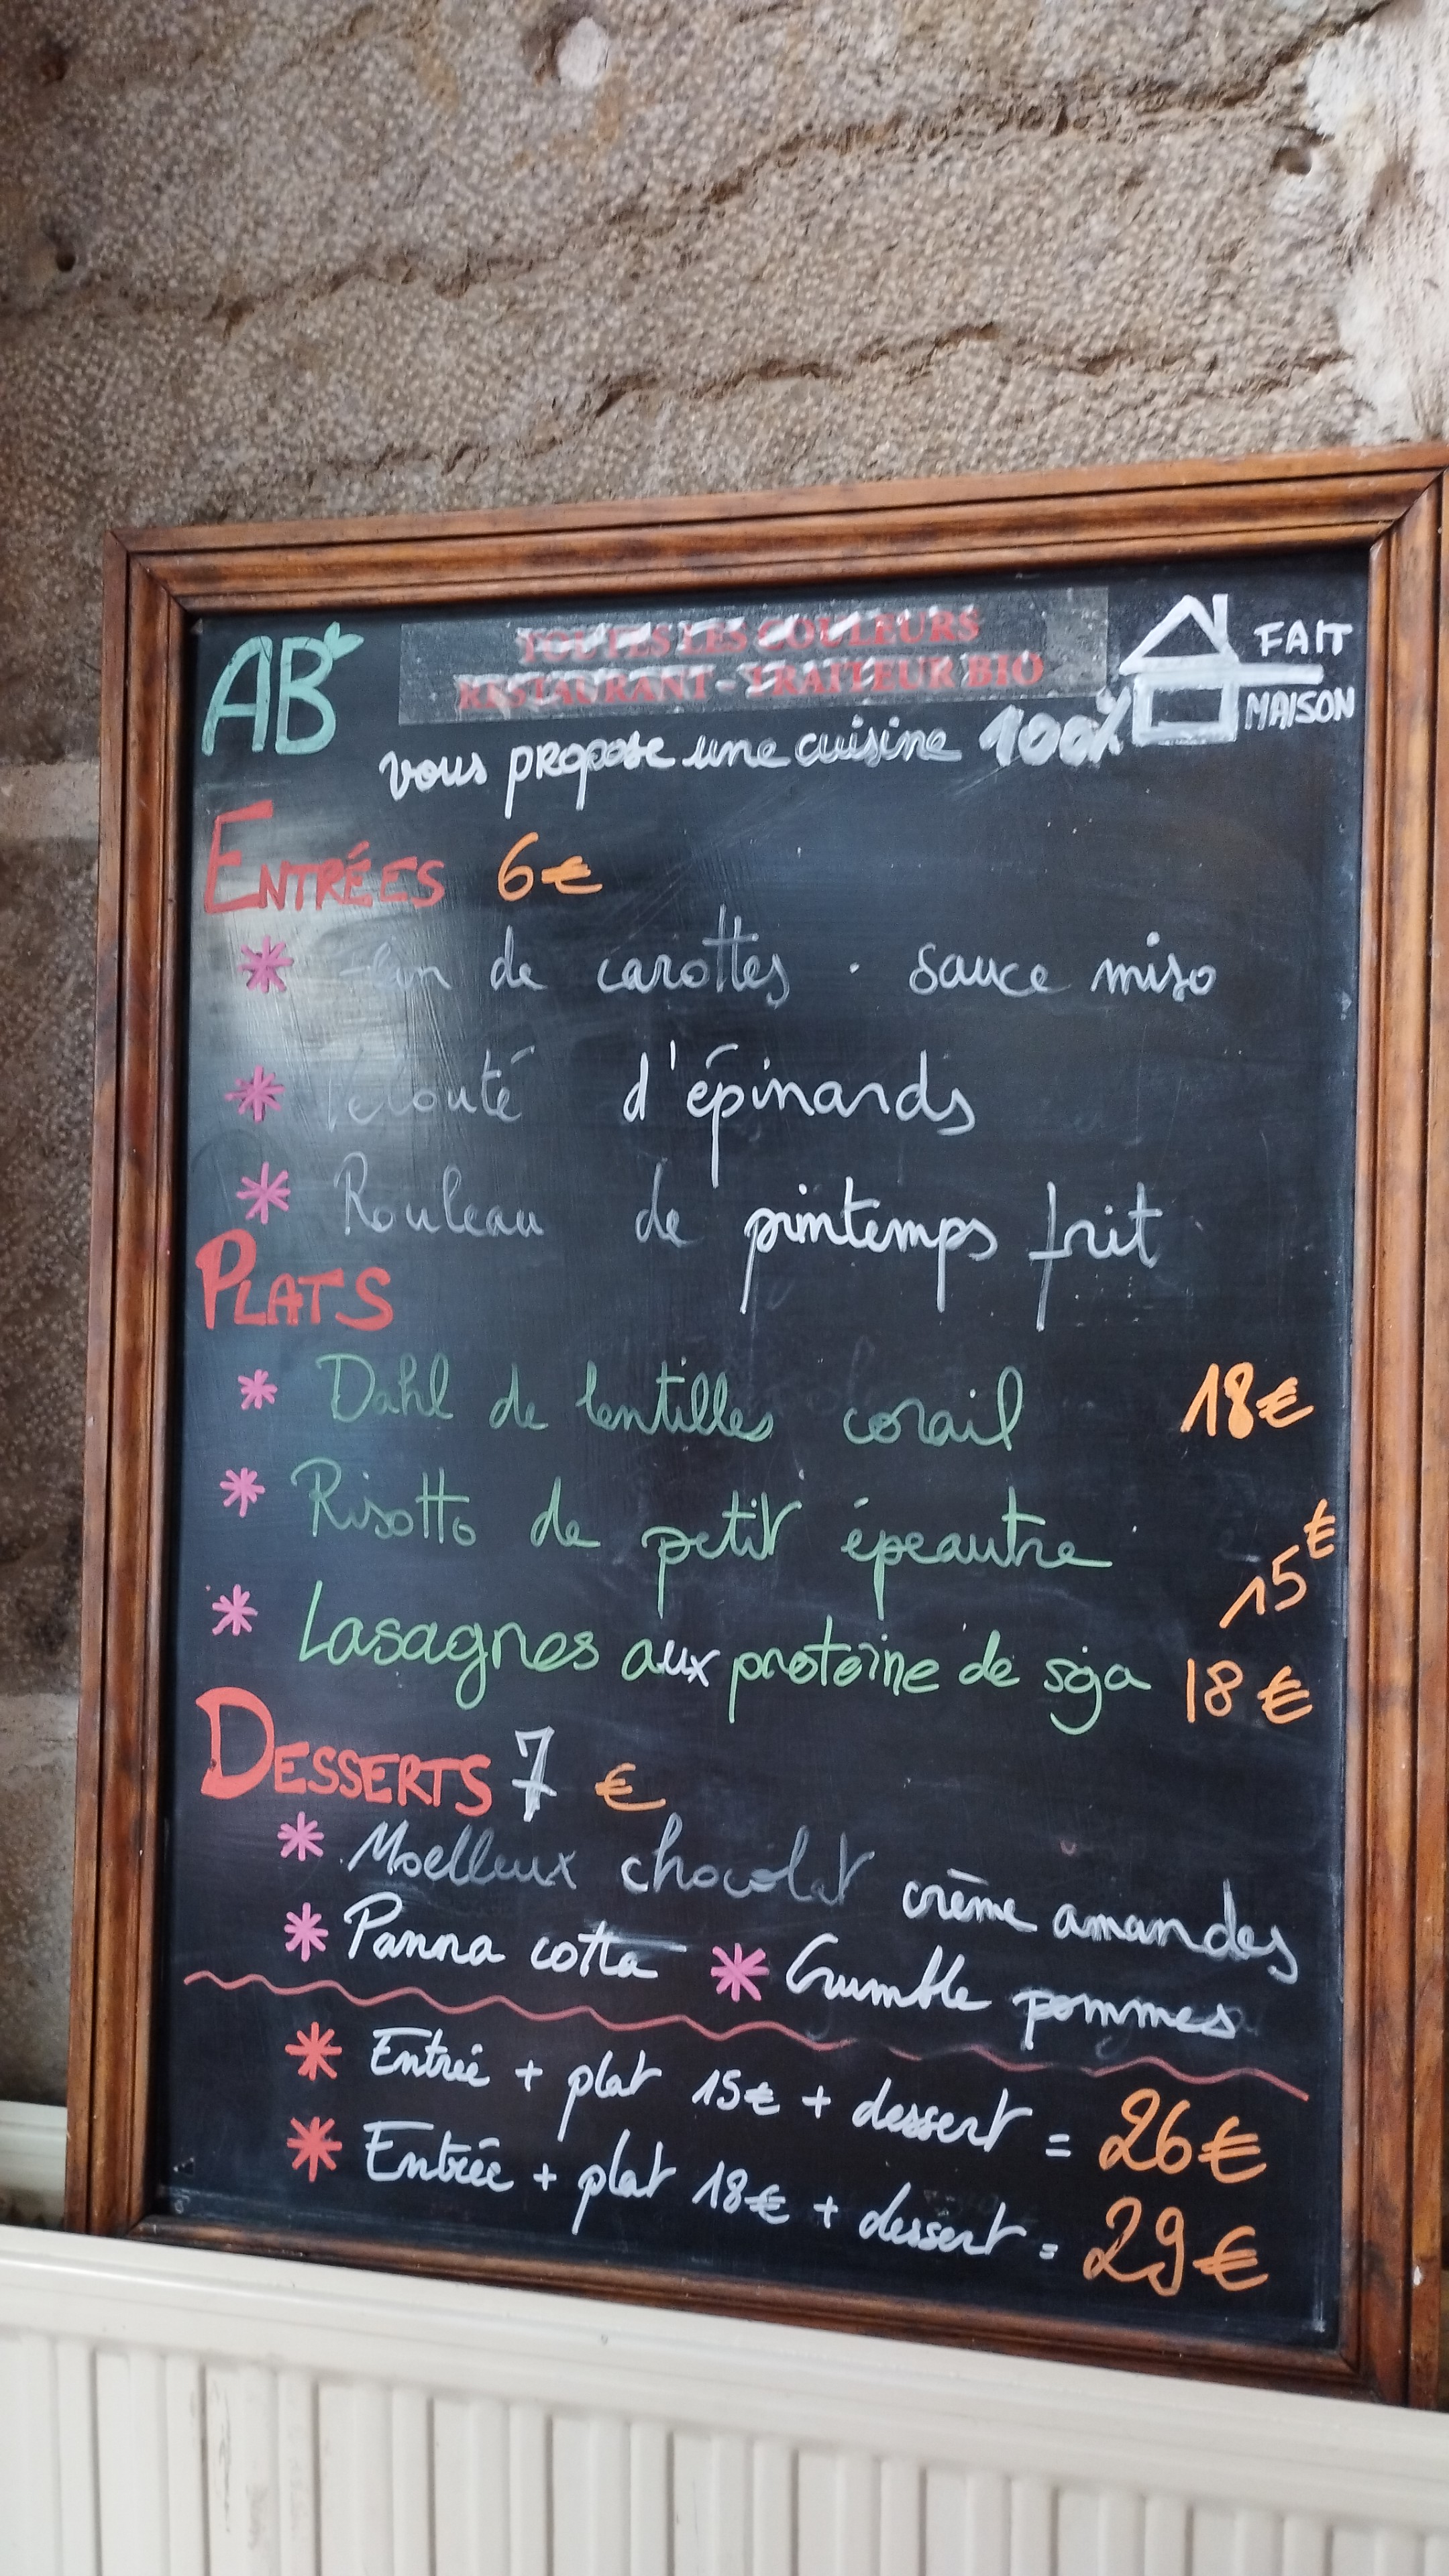 AB
TOUTES LES COULEURS
RESTAURANT - TRAITEUR BIO
FAIT
MAISON
vous propose une cuisine 100%
ENTRÉES 6€
* Flan de carottes . sauce miso
* Velouté d'épinards
* Rouleau de printemps frit
PLATS
* Dahl de lentilles corail 18€
* Risotto de petit épeautre 15€
* Lasagnes aux protéine de soja 18€
DESSERTS 7 €
* Moelleux chocolat crème amandes
* Panna cotta * Crumble pommes
* Entrée + plat 15€ + dessert = 26€
* Entrée + plat 18€ + dessert = 29€